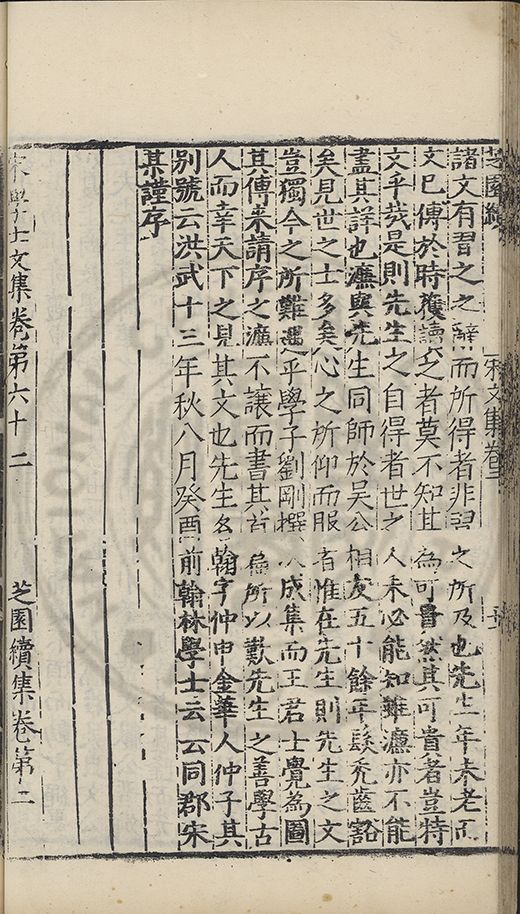 芝園續 宋文集卷三
諸文有習之之 而所得者非習之所及也先生年未老而
文已傳於時獲讀之者莫不知其為可貴然其可貴者豈特
文乎哉是則先生之自得者世之人未必能知雖濂亦不能
盡其詳也濂與先生同師於吳公相友五十餘年髮禿齒豁
矣見世之士多矣心之所仰而服者惟在先生則先生之文
豈獨今之所難遇乎學子劉剛撰次成集而王君士覺為圖
其傳来請序之濂不讓而書其首 所以歎先生之善學古
人而幸天下之見其文也先生名翰字仲申金華人仲子其
別號云洪武十三年秋八月癸酉前翰林學士云云同郡宋
某謹序
宋學士文集卷第六十二 芝園續集卷第二